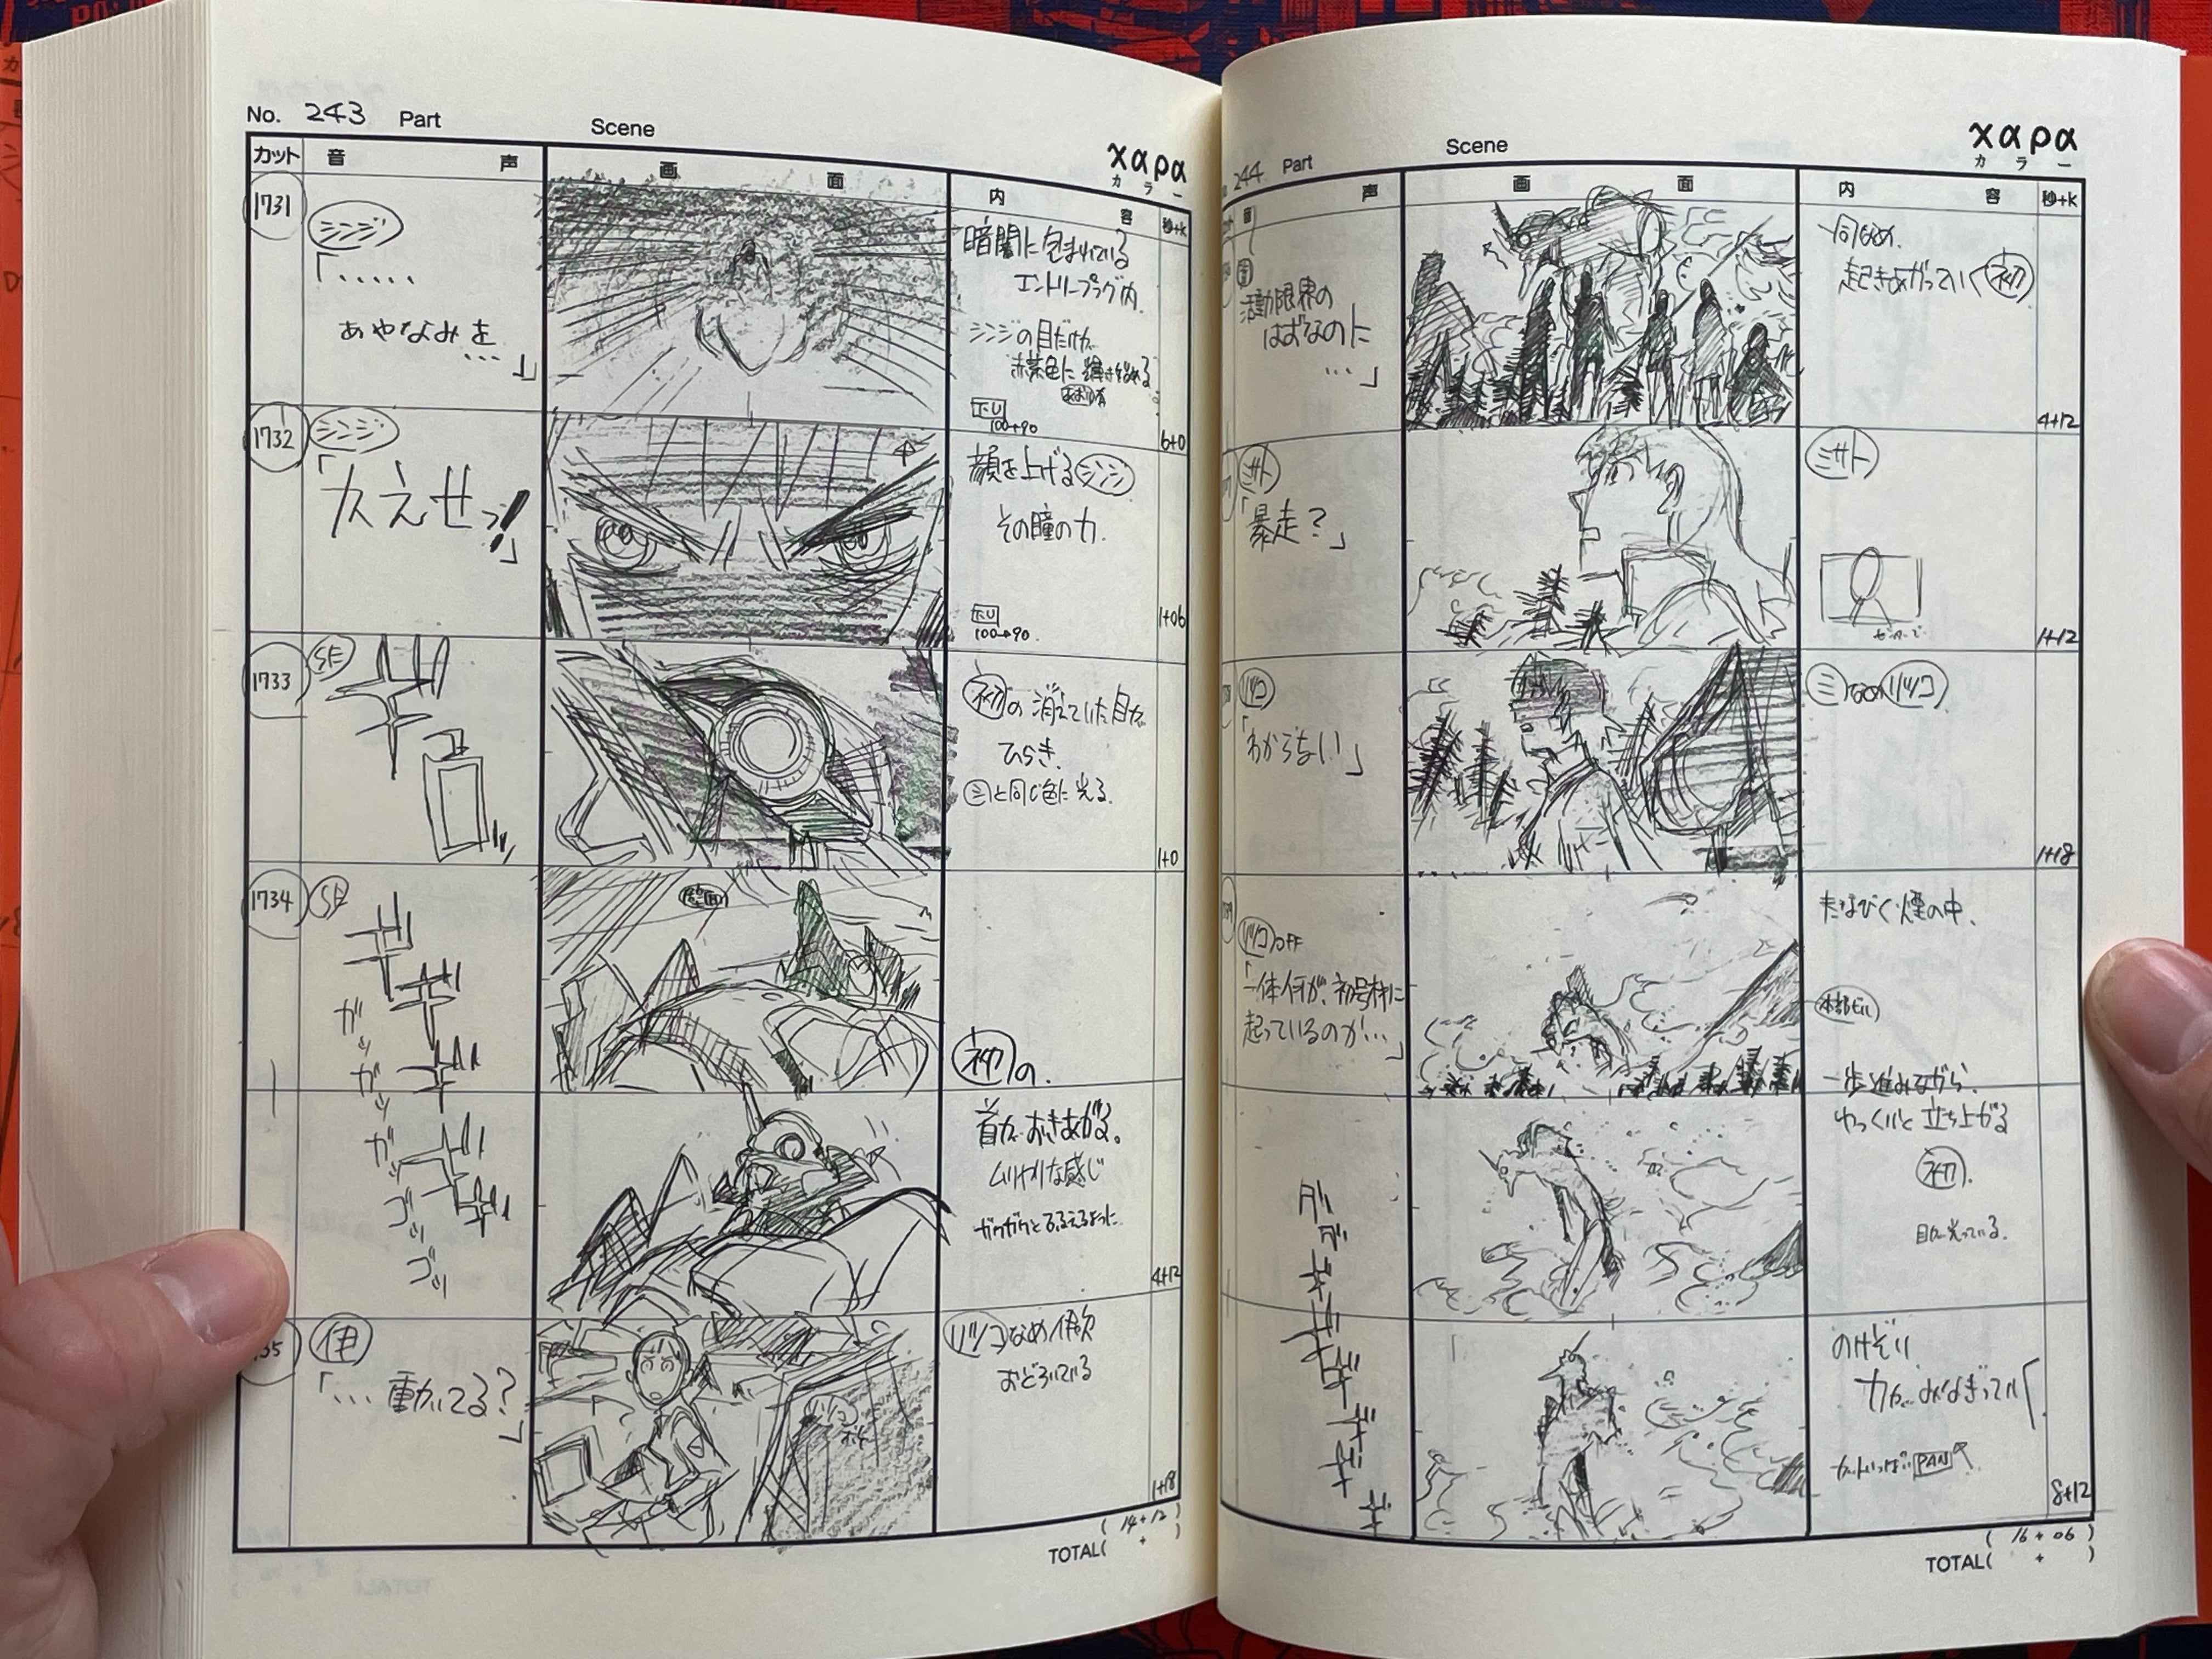 No. 243 Part Scene
χαρα
カラー
カット 音 声 画 面 内 容 秒+K
1731
シンジ
「・・・・・
あやなみを
…」
暗闇に包まれている
エントリープラグ内.
シンジの目だけが
赤茶色に輝き始める
T.U
100→90
6+0
1732
シンジ
「かえせっ!」
顔を上げるシンジ
その瞳の力.
T.U
100→90.
1+06
1733
SE
キン
初の消えていた目が
ひらき.
シと同じ色に光る.
1+0
1734
SE
ガッ
ガッ
ガッ
ゴッ
ゴッ
初の.
首が、おきあがる。
ムリヤリな感じ
ガクガクとふるえるように.
4+12
35
伊
「… 動いてる?」
リツコなめ伊吹
おどろいている
1+18
(14+12)
TOTAL( + )
244 Part Scene
χαρα
カラー
音 声 画 面 内 容 秒+K
活動限界の
はずなのに
…」
一同なめ.
起きあがっていく初
4+12
ミサト
「暴走?」
ミサト
1+12
リツコ
「わからない」
ミなめリツコ
1+18
リツコOFF
「一体何が、初号機に
起っているのか…」
たなびく煙の中.
本部ビル
一歩進みながら.
ゆっくりと立ち上がる
初.
目が光っている.
のけぞり
力が、みなぎっていく.
カットいっぱいPAN
8+12
(16+06)
TOTAL( + )